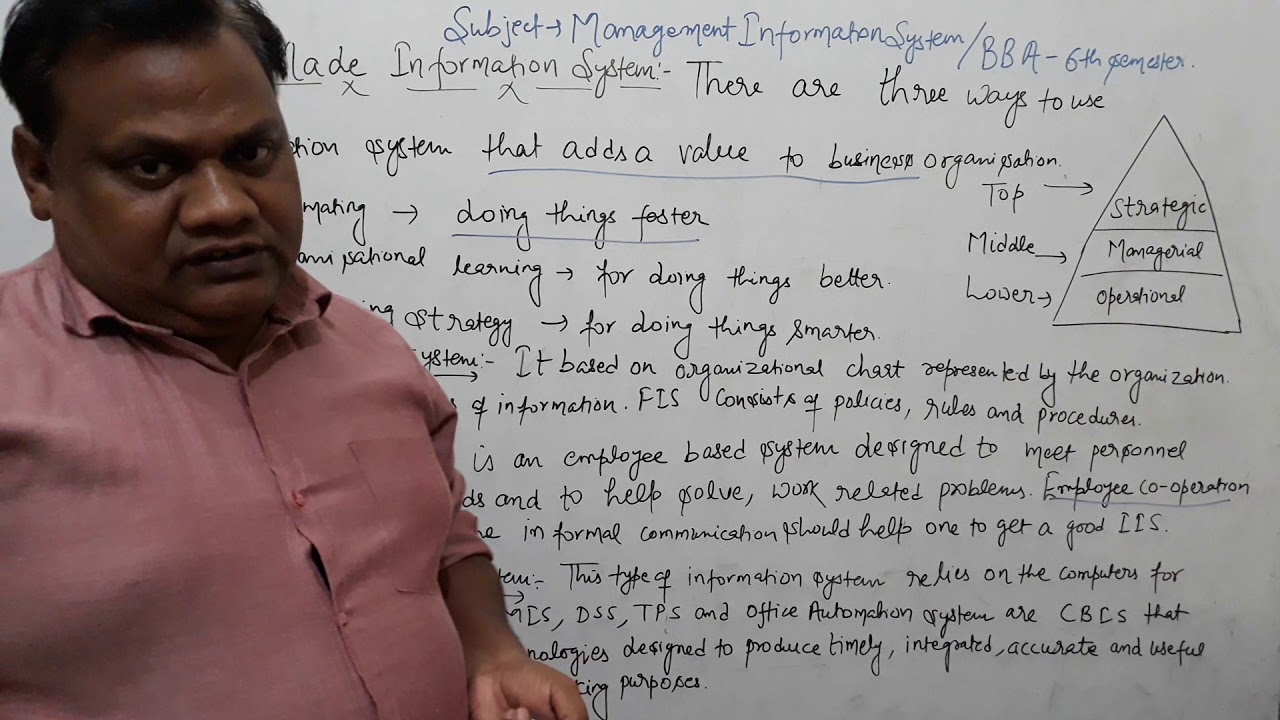 Subject → Management Information System / BBA - 6th semester.
Made Information System:- There are three ways to use
tion system that adds a value to business organisation.
mating → doing things faster
anisational learning → for doing things better.
ing strategy → for doing things smarter.
Top →
Strategic
Middle →
Managerial
Lower →
Operational
ystem:- It based on organizational chart represented by the organization.
s of information. FIS Consists of policies, rules and procedures.
is an employee based system designed to meet personnel
ds and to help solve, work related problems. Employee co-operation
in formal communication should help one to get a good IIS.
tem:- This type of information system relies on the computers for
MIS, DSS, TPS and Office Automation system are CBIS that
nologies designed to produce timely, integrated, accurate and useful
king purposes.